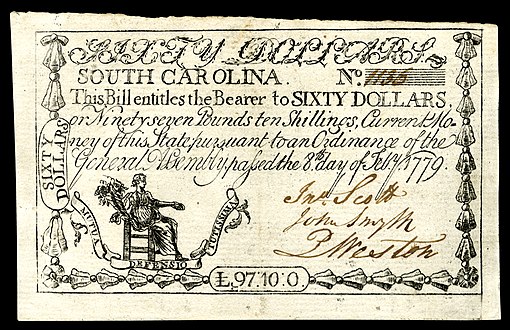 SIXTY DOLLARS.
SOUTH CAROLINA. No.
This Bill entitles the Bearer to SIXTY DOLLARS,
or Ninety seven Pounds ten Shillings, Current Mo-
ney of this State, pursuant to an Ordinance of the
General Assembly, passed the 8th. day of Feby. 1779.
SIXTY
DOLLARS
Jno. Scott
John Smyth
P Weston
MUTUA DEFENSIO TUTISSIMA
£.97:10:0.